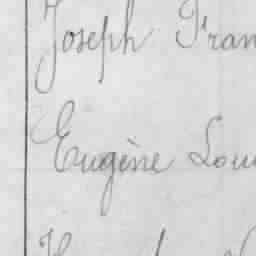 Joseph Fran
Eugène Lou